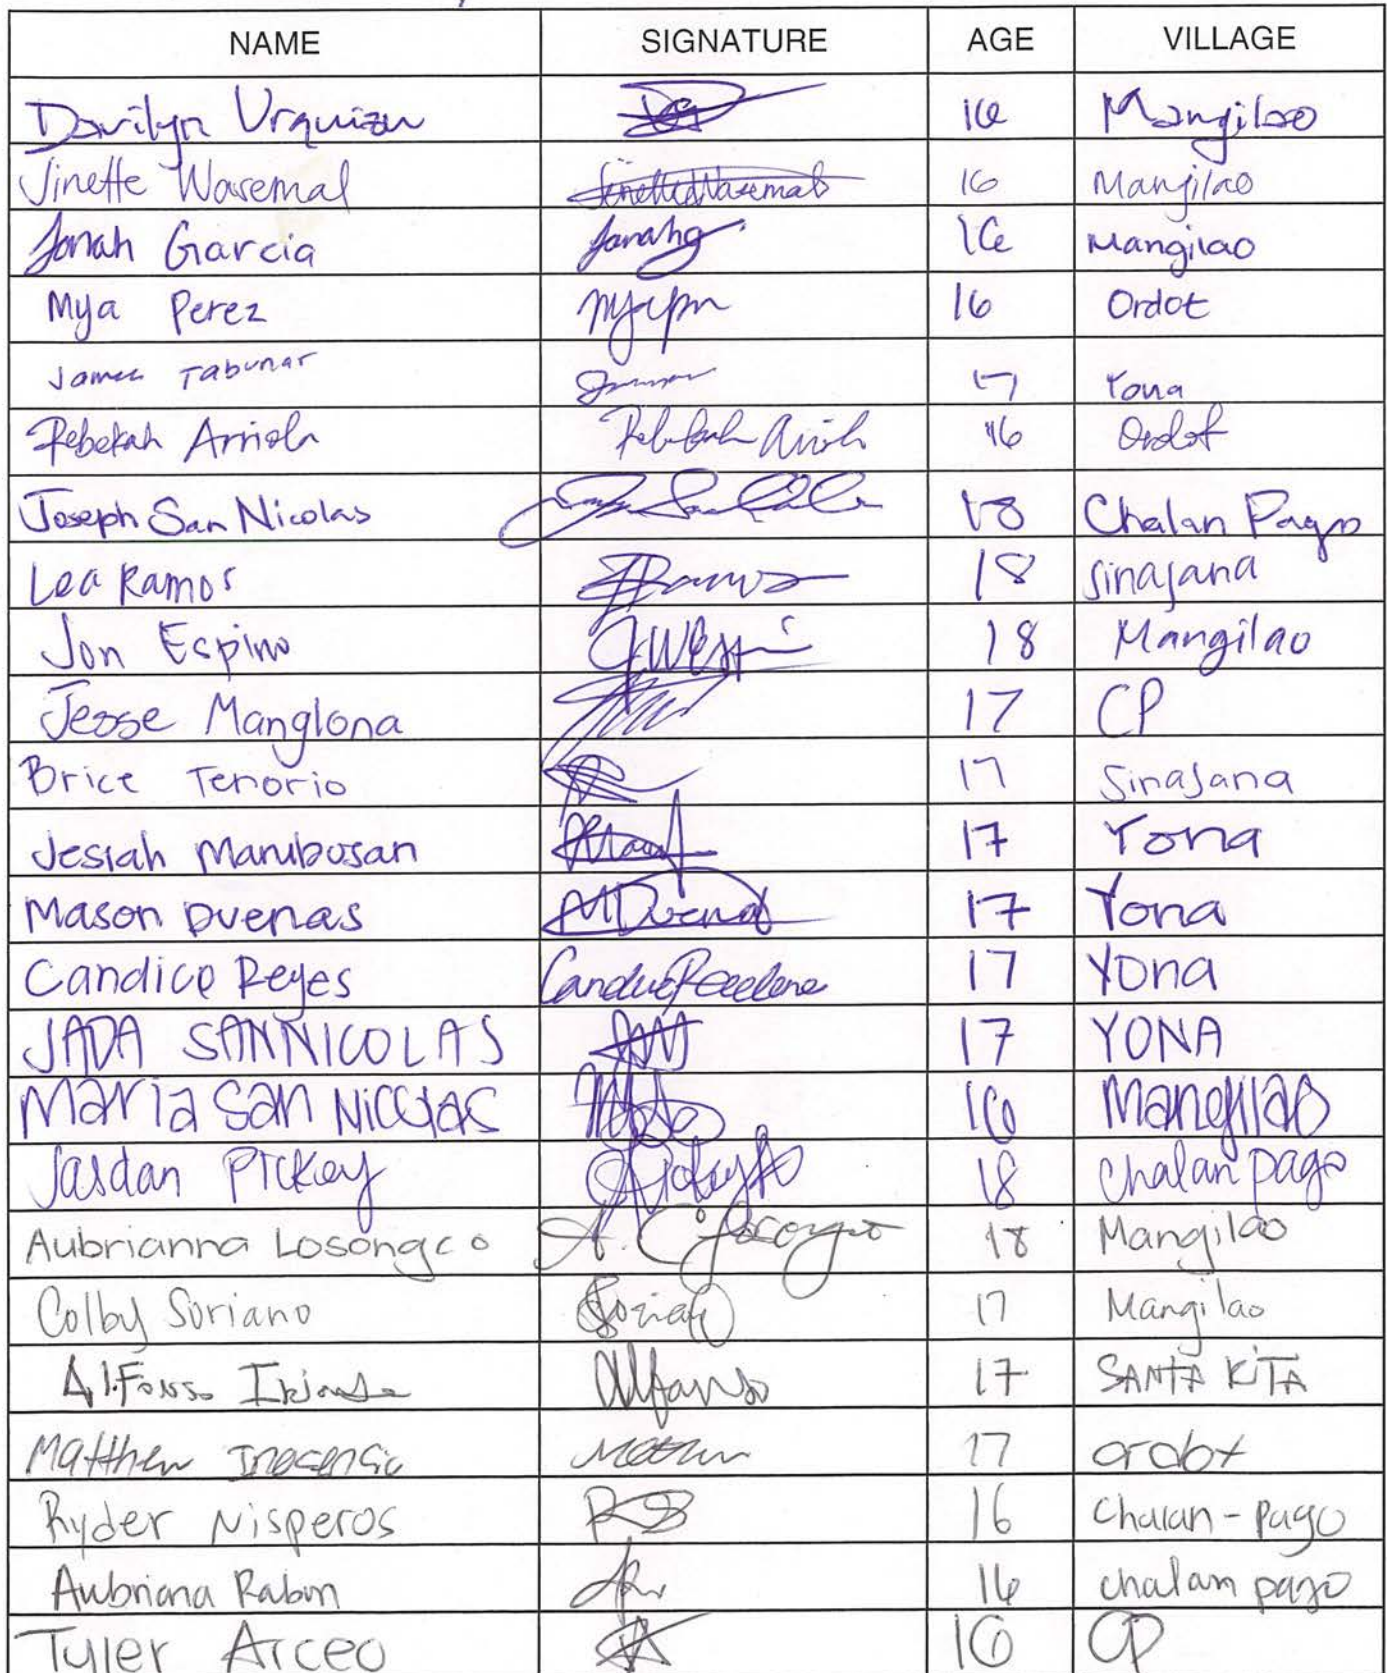 NAME SIGNATURE AGE VILLAGE
Davilyn Urquizu 16 Mangilao
Jinette Wasemal JinetteWasemal 16 Mangilao
Jonah Garcia Jonahg 16 Mangilao
Mya Perez 16 Ordot
James Tabunar 17 Yona
Rebekah Arriola Rebekah Arriola 16 Ordot
Joseph San Nicolas 18 Chalan Pago
Lea Ramos 18 Sinajana
Jon Espino 18 Mangilao
Jesse Manglona 17 CP
Brice Tenorio 17 Sinajana
Jesiah Manibusan 17 Yona
Mason Duenas MDuenas 17 Yona
Candice Reyes 17 Yona
JADA SANNICOLAS 17 YONA
Maria San Nicolas 16 Mangilao
Jasdan Pickey 18 Chalan pago
Aubrianna Losongco 18 Mangilao
Colby Soriano 17 Mangilao
Alfonso Alfonso 17 SANTA RITA
Matthew Inocencio 17 ordot
Ryder Nisperos 16 Chalan-pago
Aubriana Rabon 16 chalan pago
Tyler Arceo 16 CP